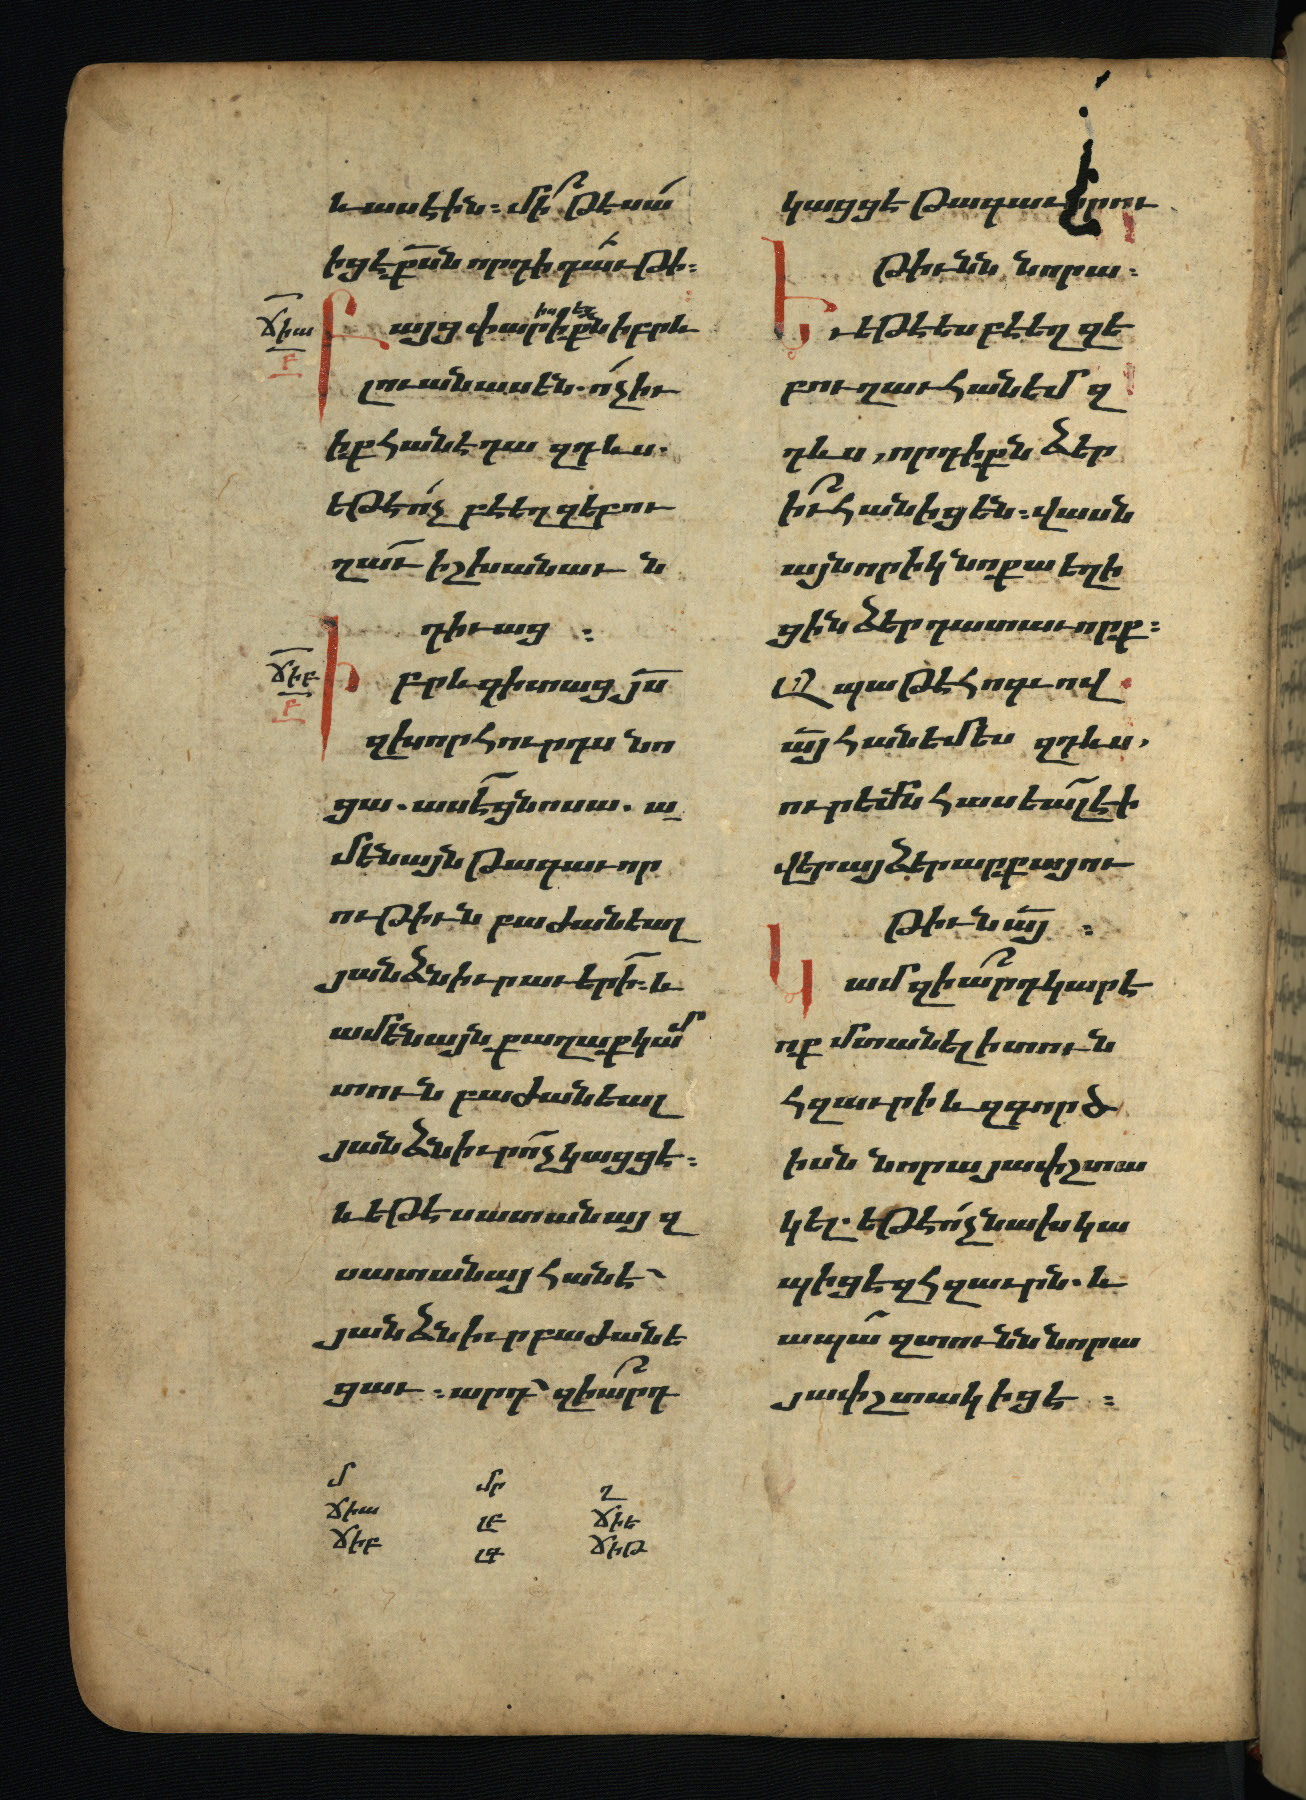 և ասէին։ մի՞ թէ սա
իցէ քսն որդի դաւթի։
ճիա
բ
Բայց փարիսեցիքն իբրև
լուան ասեն. ոչ իւ
իք հանէ դա զդևս.
եթէ ոչ բէեղզեբու
ղաւ իշխանաւն
դիւաց ։
ճիբ
բ
Իբրև գիտաց յս
զխորհուրդս նո
ցա. ասէ ցնոսա. ա
մենայն թագաւոր
ութիւն բաժանեալ
յանձնիւր աւերի։ և
ամենայն քաղաք կամ
տուն բաժանեալ
յանձնիւր ոչ կացցէ։
և եթէ սատանայ զ
սատանայ հանէ՝
յանձնիւր բաժանե
ցաւ ։ արդ՝ զիա՞րդ
կացցէ թագաւորու
թիւնն նորա։
Եւ եթէ ես բէեղզե
բուղաւ հանեմ զ
դևս, որդիքն ձեր
իւ՞ հանիցեն։ վասն
այնորիկ նոքա եղի
ցին ձեր դատաւորք։
Ապա թէ հոգւով
այ հանեմ ես զդևս,
ուրեմն հասեալ է ի
վերայ ձեր արքայու
թիւն այ ։
Կամ զիա՞րդ կարէ
ոք մտանել ի տուն
հզաւրի և զգործ
իսն նորա յափշտա
կել. եթէ ոչ նախ կա
պիցէ զհզաւրն. և
ապա զտունն նորա
յափշտակիցէ ։
մ մր ղ
ճիա լբ ճիե
ճիբ լգ ճիթ